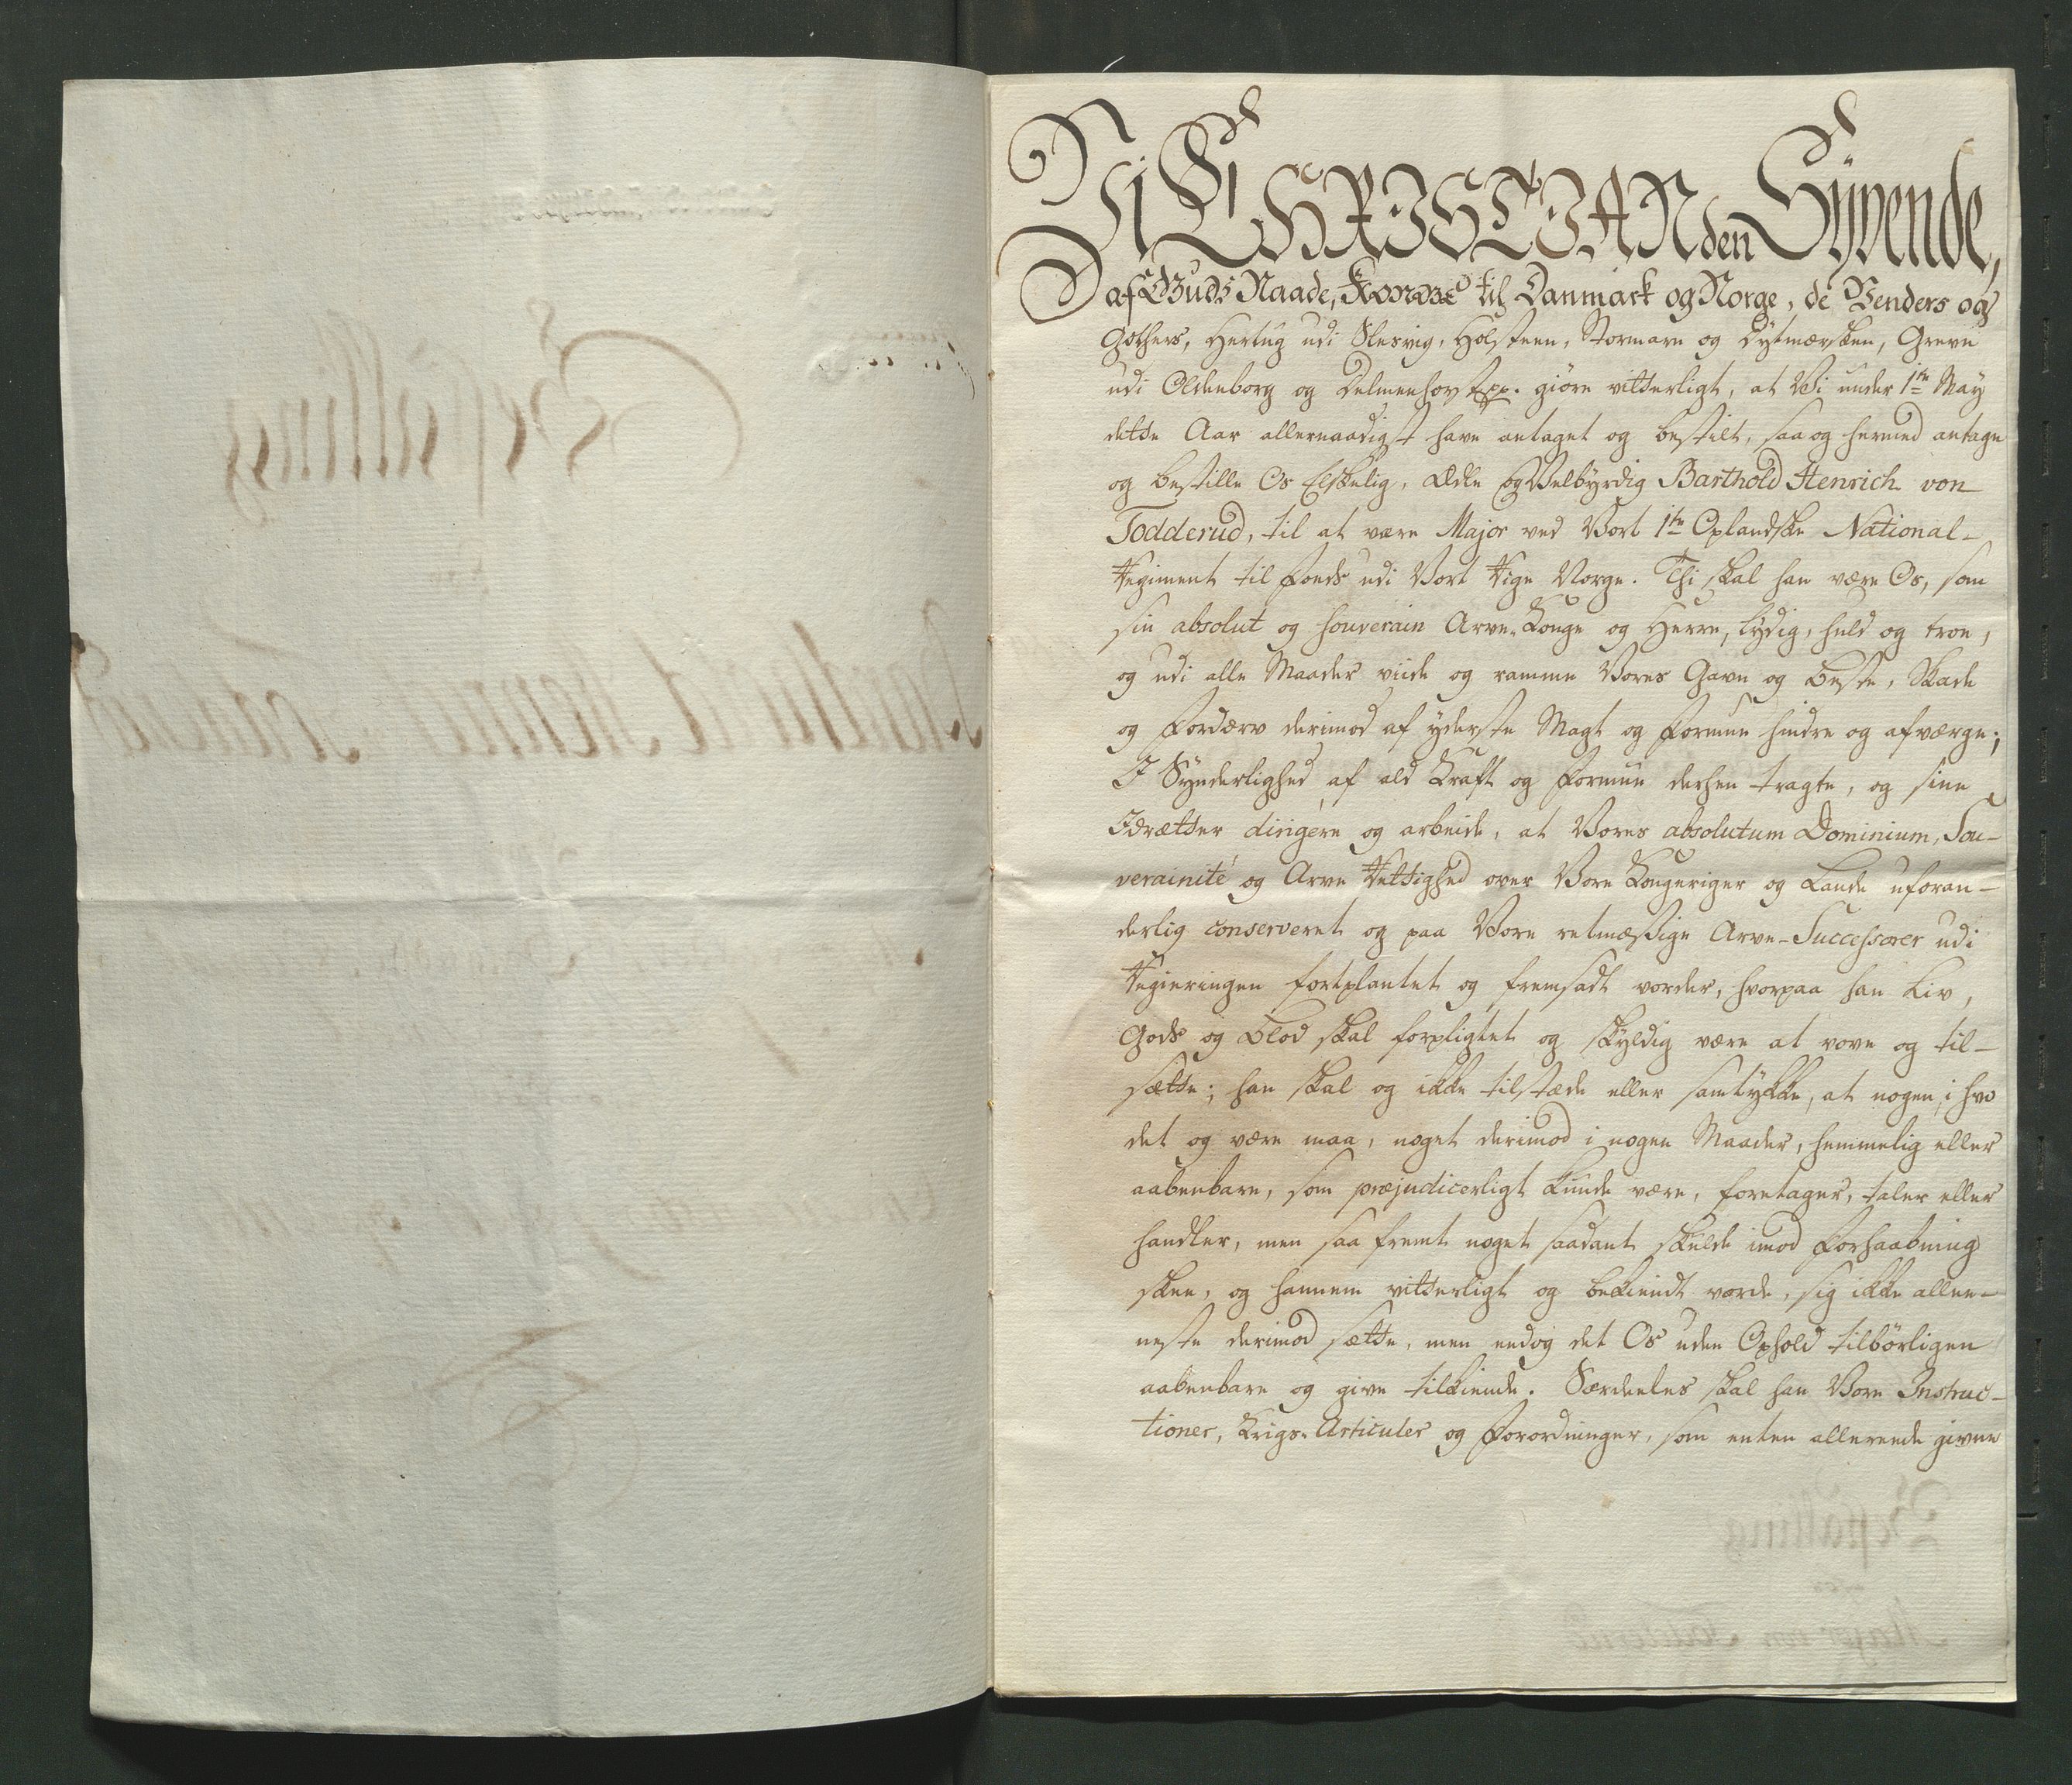 Vi CHRISTIAN den Syvende,
af Guds Naade, Konge til Danmark og Norge, de Venders og
Gothers, Hertug udi Slesvig, Holsteen, Stormarn og Dytmersken, Greve
udi Oldenborg og Delmenhorst pp. giøre vitterligt, at Vi under 1te May
dette Aar allernaadigst have antaget og bestilt, saa og hermed antage
og bestille Os Elskelig, Ædle og Velbyrdig Barthold Henrich von
Todderud, til at være Major ved Vort 1te Oplandske National-
Regiment til Fods udi Vort Rige Norge. Thi skal han være Os, som
sin absolut og souverain Arve-Konge og Herre, lydig, huld og troe,
og udi alle Maader viide og ramme Vores Gavn og beste, Skade
og Fordærv derimod af yderste Magt og Formue hindre og afværge;
I Synderlighed af ald Kraft og Formue derhen tragte, og sine
Idrætter dirigere og arbeide, at Vores absolutum Dominium, Sou-
verainité og Arve Rettighed over Vore Kongeriger og Lande uforan-
derlig conserveret og paa Vore retmæssige Arve-Successorer udi
Regieringen fortplantet og fremsadt vorder, hvorpaa han Liv,
Gods og Blod skal forpligtet og skyldig være at vove og til-
sætte; han skal og ikke tilstæde eller samtykke, at nogen, i hvo
det og være maa, noget derimod i nogen Maader, hemmelig eller
aabenbare, som præjudicerligt kunde være, foretager, taler eller
handler, men saa fremt noget saadant skulde imod Forhaabning
skee, og hannem vitterligt og bekiendt vorde, sig ikke allee-
neste derimod sætte, men endog det Os uden Ophold tilbørligen
aabenbare og give tilkiende. Særdeeles skal han Vore Instruc-
tioner, Krigs-Articuler og Forordninger, som enten allereede givne